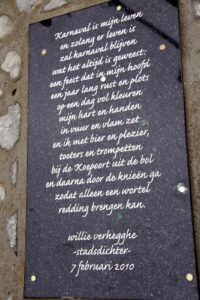 Karnaval is mijn leven
en zolang er leven is
zal karnaval blijven
wat het altijd is geweest:
een feest dat in mijn hoofd
een jaar lang rust en plots
op een dag vol kleuren
mijn hart en handen
in vuur en vlam zet
en ik met bier en plezier,
toeters en trompetten
bij de Koepoort uit de bol
en daarna door de knieën ga
zodat alleen een wortel
redding brengen kan.
willie verhegghe
-stadsdichter-
7 februari 2010